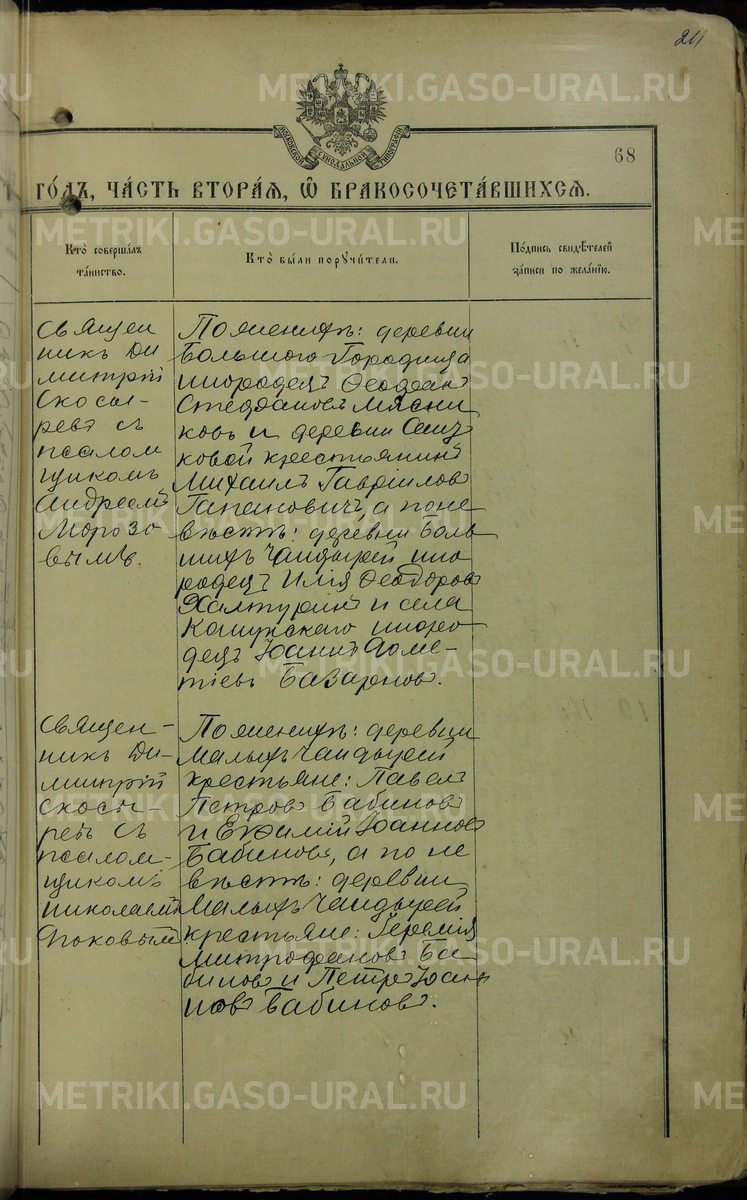 211
МОСКОВСКОЙ СУНОДАЛЬНОЙ ТИПОГРАФІИ
68
ГОДЪ, ЧАСТЬ ВТОРАЯ, Ѿ БРАКОСОЧЕТАВШИХСЯ.
Кто совершалъ
таинство.
Кто были поручители.
Подпись свидѣтелей
записи по желанію.
Священ
никъ Ди
митрій
Скосы-
ревъ съ
псалом
щикомъ
Андреемъ
Морозо
вымъ.
По женихѣ: деревни
Большого Городища
инородецъ Феофан
Стефановъ Мясни
ковъ и деревни
ковой крестьянинъ
Михаилъ Гавріилов
Гапанович, а по не
вѣстѣ: деревни Боль
шихъ Чандырей ино
родецъ Илія Феодоров
Халтурин и села
Кошукскаго иноро
децъ Іоаннъ Доме-
тіевъ Базарнов.
Священ-
никъ Ди-
митрій
Скосы-
ревъ съ
псалом-
щикомъ
Николаемъ
По женихѣ: деревни
Малыхъ Чандырей
крестьяне: Павел
Петров Бабинов
и Евѳимій Іоаннов
Бабинов, а по не
вѣстѣ: деревни
Малыхъ Чандырей
крестьяне: Іеремія
Митрофанов Ба
бинов и Петръ Іоан
нов Бабинов.
METRIKI.GASO-URAL.RU